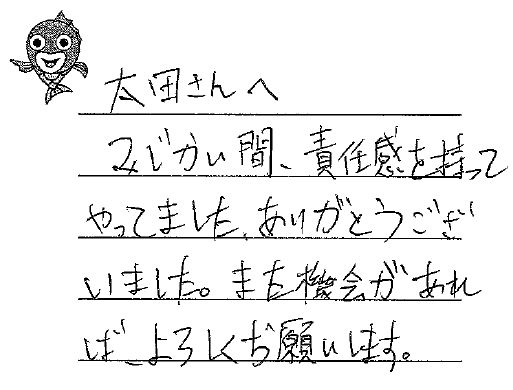 太田さんへ
みじかい間、責任感を持って
やってました、ありがとうござ
いました。また機会があれ
ば、よろしくお願いします。